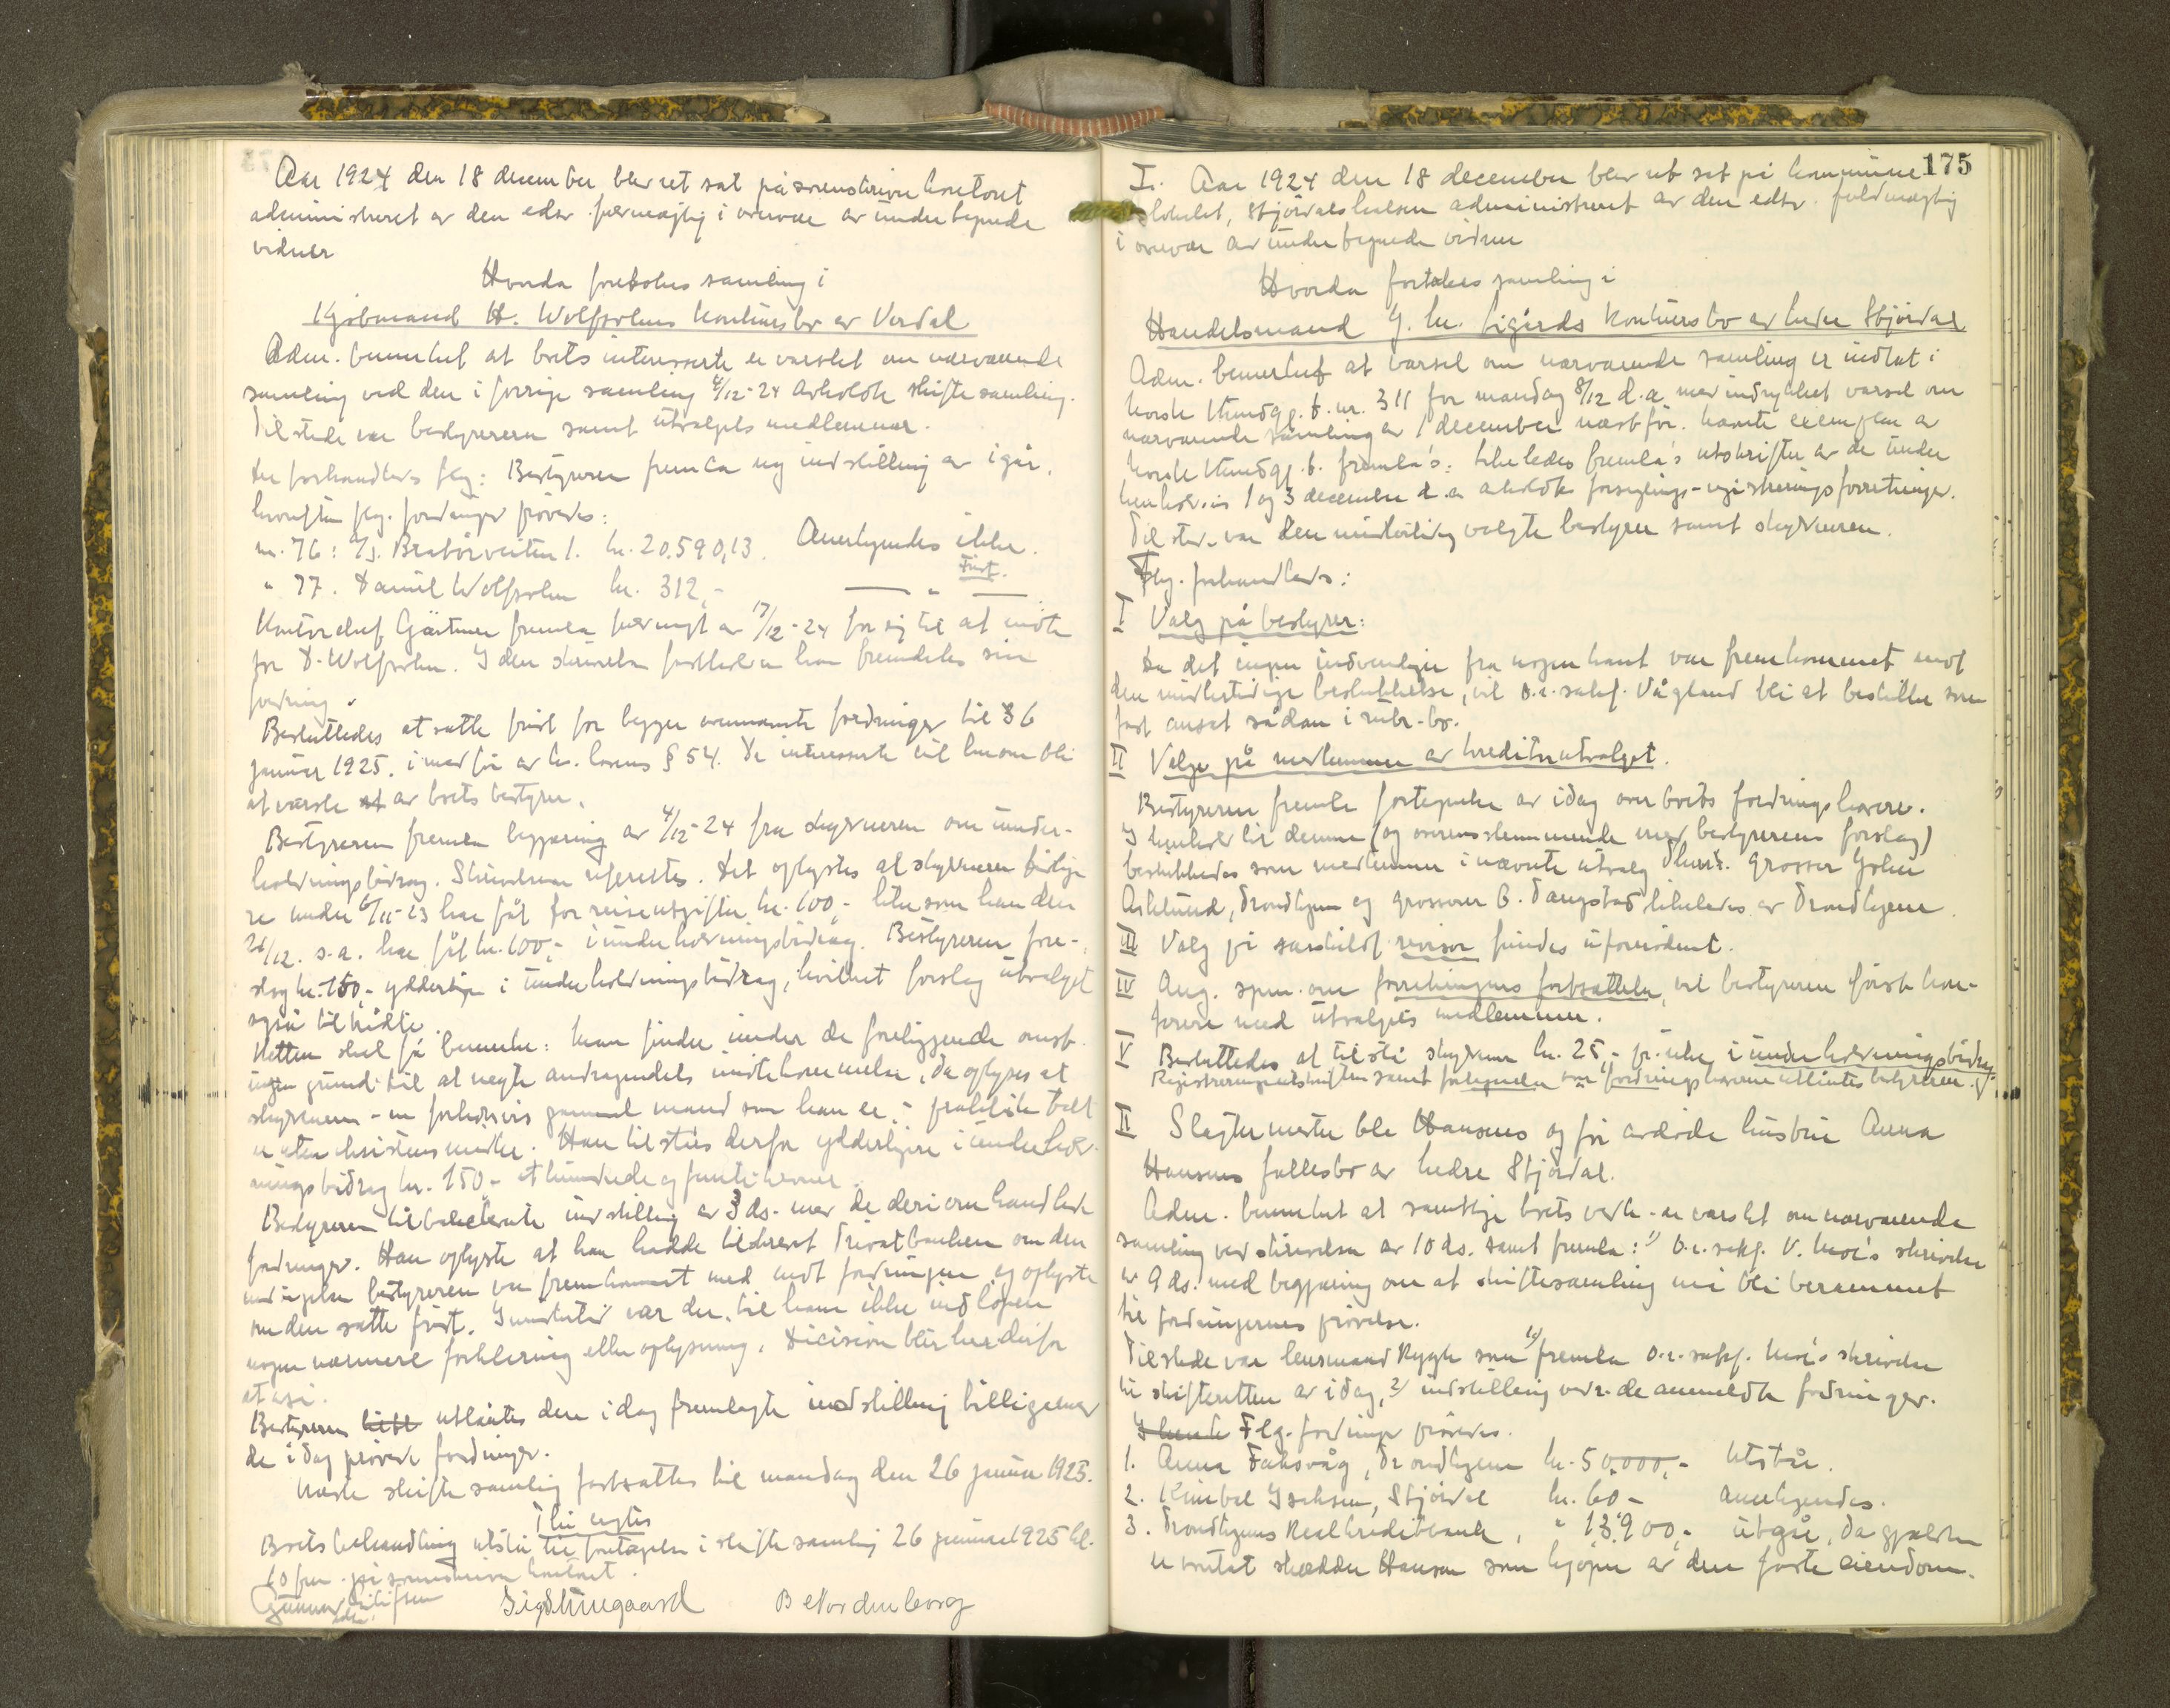 Aar 1924 den 18 december blev ret sat på sorenskriverkontoret
administreret av den edsv. fuldmægtig i overvær av undertegnede
vidner
Hvorda foretokes samling i
Kjøbmand H. Wolfsohns konkursbo av Verdal
Adm. bemerket at boets interesserte er varslet om nærværende
samling ved den i forrige samling 4/12-24 avholdte skiftesamling.
Tilstede var bestyreren samt utvalgets medlemmer.
Der forhandledes flg: Bestyreren fremla ny indstilling av igår,
hvorefter flg. fordringer prøvedes:
nr. 76: A/S. Bratørveiten 1. kr. 20.590,13. Anerkjendes ikke.
Fürst.
" 77. Daniel Wolfsohn kr. 312,- — " —
Kontorchef Gärtner fremla fuldmagt av 17/12-24 for sig til at møte
for D. Wolfsohn. I den skrivelse fastholder han fremdeles sin
fordring.
Besluttedes at sætte frist for begge ovennævnte fordringer til 26
januar 1925, i medfør av k. lovens § 54. De interesserte vil herom bli
at varsle av boets bestyrer.
Bestyreren fremla begjæring av 4/12-24 fra skyldneren om under-
holdningsbidrag. Skrivelsen refertes. Det oplystes at skyldneren tidlige
re under 6/11-23 har fåt for reiseutgifter kr. 100,- likesom han den
21/12. s.a. har fåt kr. 100,- i underholdningsbidrag. Bestyreren fore-
slog kr. 150,- yderligere i underholdningsbidrag, hvilket forslag utvalget
også tilrådte.
Retten skal få bemerke: Man finder under de foreliggende omst.
ingen grund til at negte andragendets imøtekommelse, da oplyses at
skyldneren - en forholdsvis gammel mand som han er - praktisk talt
er uten eksistensmidler. Han tilståes derfor yderligere i underhold-
ningsbidrag kr. 150 - et hundrede og femti kroner.
Bestyreren tilbakeleverte indstilling av 3 ds. med de deri omhandlede
fordringer. Han oplyste at han hadde tilskrevet Privatbanken om den
indsigelse bestyreren var fremkommet med mot fordringen og oplyste
om den satte frist. Imidlertid var der til ham ikke indløpet
nogen nærmere forklaring eller oplysning. Decision blir her derfor
at avsi.
Bestyreren utlåntes den i dag fremlagte indstilling tillikemed
de i dag prøvede fordringer.
Næste skiftesamling fortsættes til mandag den 26 januar 1925.
Thi eragtes
Boets behandling utstår til foretagelse i skiftesamling 26 januar 1925 kl.
10 fm. på sorenskriverkontoret.
Gunnar
edsv.
Sig Stuegaard B. Nordenborg
175
I. Aar 1924 den 18 december blev ret sat på kommune
lokalet, Stjørdalshalsen administreret av den edsv. fuldmægtig
i overvær av undertegnede vidner
Hvorda foretokes samling i
Handelsmand J. M. Ligårds konkursbo av nedre Stjørdal
Adm. bemerket at varsel om nærværende samling er indtat i
norsk kundgj. t. nr. 311 for mandag 8/12 d.a. med indrykket varsel om
nærværende samling av 1 december næstfør. Nævnte exemplar av
norsk kundgj. t. fremla's: likeledes fremla's utskrifter av de under
henholdsvis 1 og 3 december d.a. avholdte forseglings-registreringsforretninger.
Tilstede var den midlertidig valgte bestyrer samt skyldneren.
Flg. forhandledes:
I Valg på bestyrer:
Da det ingen indvendinger fra nogen kant var fremkommet mot
den midlertidige beskikkelse, vil o.r. sakf. Vågland bli at beskikke som
fast ansat sådan i rubr. bo.
II Valg på medlemmer av kreditorutvalget.
Bestyreren fremla fortegnelse av idag over boets fordringshavere.
I henhold til denne (og overensstemmende med bestyrerens forslag)
beskikkedes som medlemmer i nævnte utvalg d'herr. grosser John
Asklund, Trondhjem og grosserer B. Tangstad likeledes av Trondhjem.
III Valg på særskilt revisor findes ufornødent.
IV Ang. spm. om forretningens fortsættelse, vil bestyreren først kon-
ferere med utvalgets medlemmer.
V Besluttedes at tilstå skyldner kr. 25,- pr. uke i underholdningsbidrag.
Registreringsutskriften samt fortegnelsen over fordringshaverne utlåntes bestyreren.
II Slagtermester Ole Hansens og før avdøde hustru Anna
Hansens fællesbo av nedre Stjørdal.
Adm. bemerket at samtlige boets vedk. er varslet om nærværende
samling ved skrivelse av 10 ds. samt fremla: 1) o.r. sakf. V. Moe's skrivelse
av 9 ds. med begjæring om at skiftesamling må bli berammet
til fordringernes prøvelse.
Tilstede var lensmand Rygg som 1) fremla o.r. sakf. Moe's skrivelse
til skifteretten av idag, 2) indstilling vedr. de anmeldte fordringer.
Flg. fordringer prøvedes.
1. Anna Faksvåg, Trondhjem kr. 50,000,- Utstår.
2. Kimbel Isaksen, Stjørdal kr. 60 - Anerkjendes.
3. Trondhjems Realkreditbank, " 13900,- utgår, da gjælden
er overtat skrædder Hansen som kjøper av den faste eiendom.